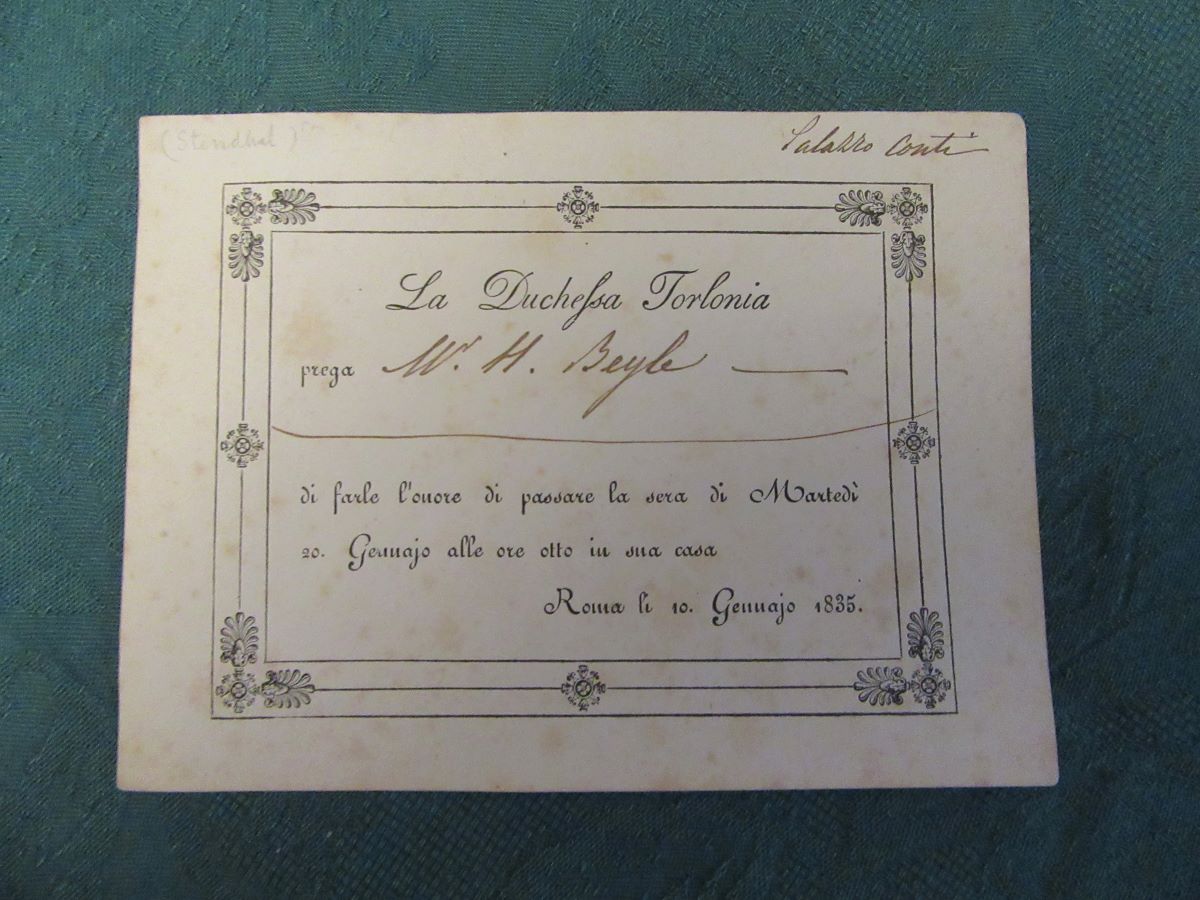 (Stendhal)
Palazzo Conti
La Duchessa Torlonia
prega Mr. H. Beyle
di farle l'onore di passare la sera di Martedì
20. Gennajo alle ore otto in sua casa
Roma lì 10. Gennajo 1835.